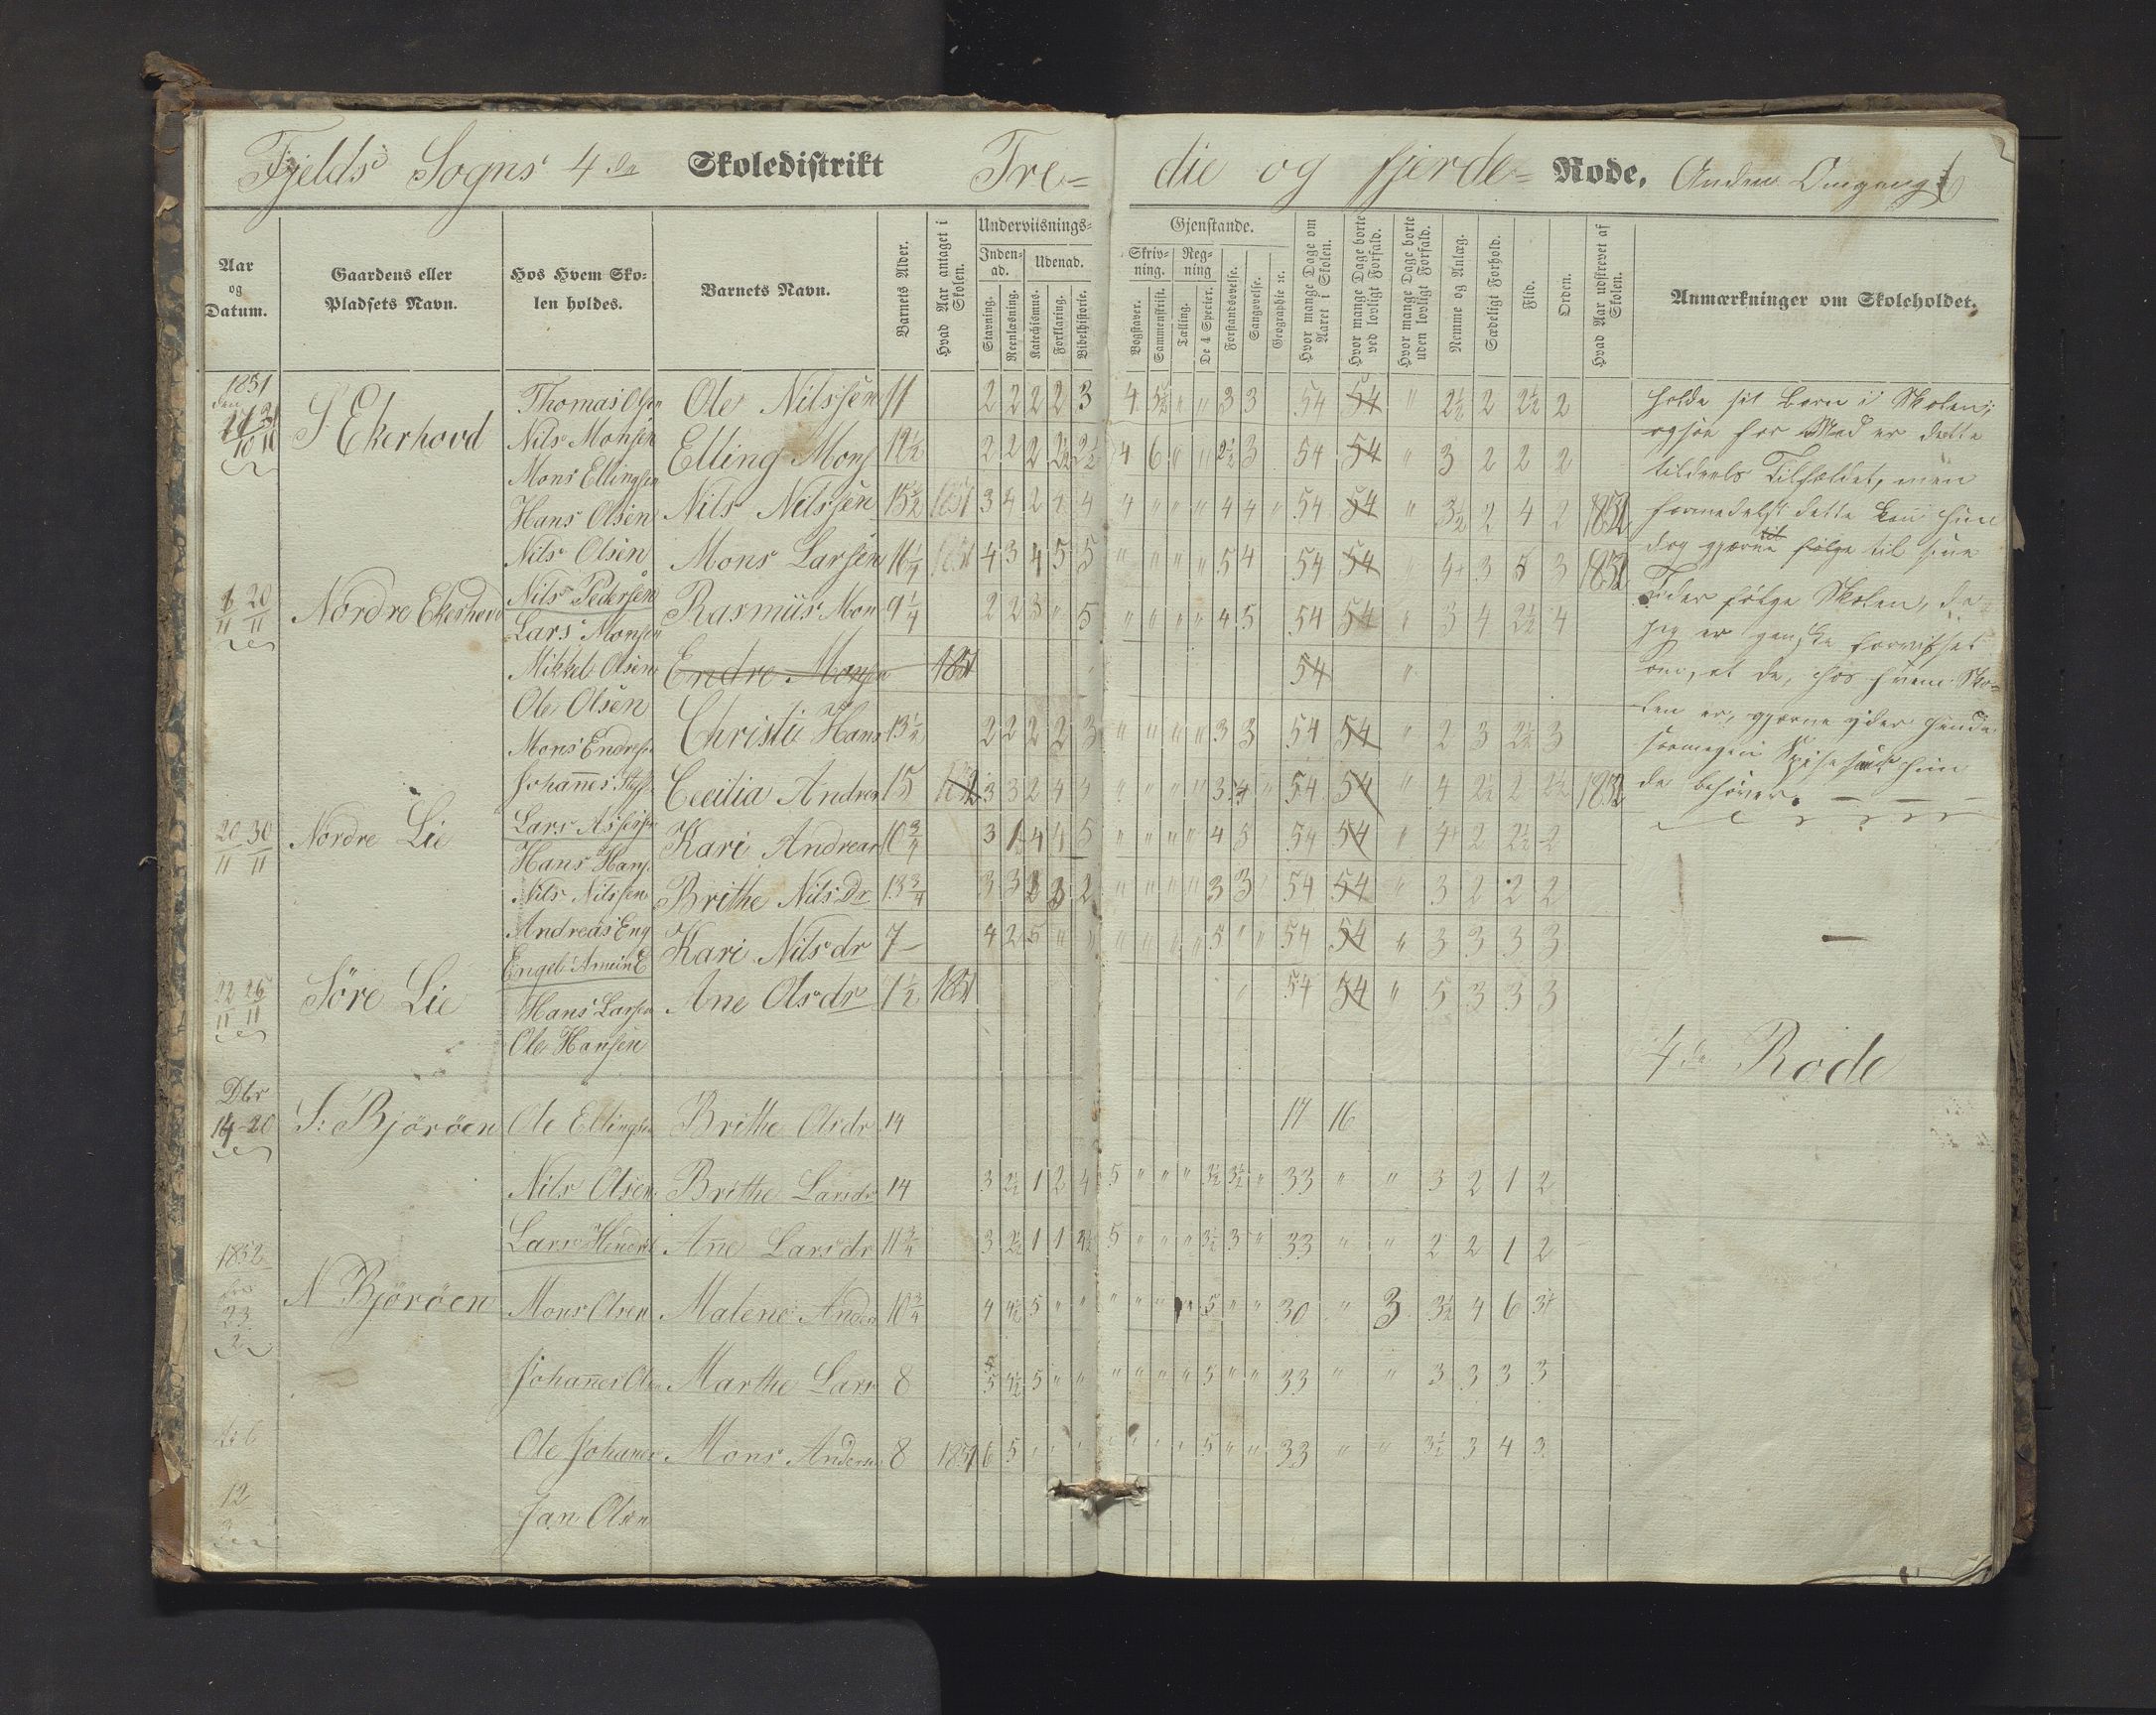 Fjelds Sogns 4de Skoledistrikt Tre= die og fjerde= Rode. Anden Omgang
Aar og Datum.
Gaardens eller Pladsets Navn.
Hos Hvem Skolen holdes.
Barnets Navn.
Barnets Alder.
Hvad Aar antaget i Skolen.
Underviisnings= Gjenstande.
Inden-ad. Udenad. Skriv-ning. Reg-ning
Stavning. Reenlæsning. Katechismus. Forklaring. Bibelhistorie.
Bogstaver. Sammenskrift. Tælling. De 4 Specier. Forstandsøvelse. Sangøvelse. Geographie ꝛc.
Hvor mange Dage om Aaret i Skolen.
Hvor mange Dage borte ved lovligt Forfald.
Hvor mange Dage borte uden lovligt Forfald.
Nemme og Anlæg. Sædeligt Forhold. Flid. Orden.
Hvad Aar udskrevet af Skolen.
Anmærkninger om Skoleholdet.
1851
S Ekerhovd
Thomas Olsen
Nils Monsen
Mons Ellingsen
Hans Olsen
Nils Olsen
Nils Pedersen
Ole Nilssen 11 2 2 2 2 3 4 5½ " " 3 3 54 54 " 2½ 2 2½ 2
Elling Mons 12½ 2 2 2 2½ 2½ 4 6 " " 2½ 3 54 54 " 3 2 2 2
Nils Nilssen 15½ 1851 3 4 2 4 4 4 " " " 4 4 " 54 54 " 3½ 2 4 2 1852
Mons Larsen 16¼ 1851 4 3 4 5 5 " " " " 5 4 54 54 " 4+ 3 5 3 1852
6/11 20/11 Nordre Ekerhovd
Lars Monsen
Mikkel Olsen
Ole Olsen
Mons Endres
Johannes
Lars
Rasmus Mons 9¼ 2 2 3 " 5 " " " " 4 5 54 54 " 3 4 2½ 4
Endre Monsen 1851 54 "
Christi Hans 13½ 2 2 2 2 3 " " " " 3 3 54 54 " 2 3 2½ 3
Cecilia Andrea 15 3 3 2 4 4 " " " " 3 4 " 54 54 " 4 2½ 2 2½ 1852
20/11 30/11 Nordre Lie
Hans Hans
Nils Nilssen
Andreas Eng
Kari Andrea 10¾ 3 1 4 4 5 " " " " 4 5 54 54 " 4+ 2 2½ 2
Brithe Nils Dr 13¾ 3 3 3 3 2 " " " " 3 3 " 54 54 " 3 2 2 2
Kari Nilsdr 7 4 2 5 " " " " " " 5 " " 54 54 " 3 3 3 3
22/11 26/11 Söre Lie
Hans Larsen
Ole Hansen
Ane Olsdr 7½ 1851 54 54 " 5 3 3 3
holde sit Barn i Skolen;
ogsaa for Mad er dette
tildeels Tilfældet, men
formedelst dette kan hun
dog gjerne til følge til sine
Tider følge Skolen, da
jeg er ganske forvisset
om, at de, hos hvem Sko=
len er, gjerne yder hende
saamegen Spise som hun
de behøver.
4de Rode
Dbr
14-20 S: Björöen Ole Ellingsen Brithe Olsdr 14 17 16
Nils Olsen Brithe Larsdr 14 3 2½ 1 2 4 5 " " " 3½ 3½ " 33 " " 3 2 1 2
Lars Hendrik Ane Larsdr 11¾ 3 2½ 1 1 3½ 5 " " " 3½ 3 " 33 " " 2 2 1 2
1852
N Björöen Mons Olsen Malene Anders 10¾ 4 4½ 5 " " " " " " 5 " " 30 " 3 3½ 4 6 3½
Johannes Olsen Marthe Lars 8 5 4½ 5 " " " " " " 5 " " 33 " " 3 3 3 3
Ole Johannes Mons Anders 8 1851 6 5 " " " " " " " 5 " " 33 " " 3½ 3 4 3
12
Jan Olsen